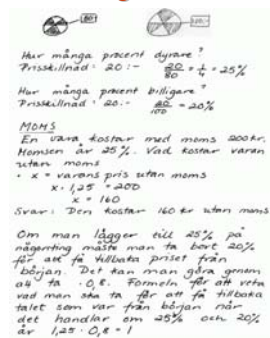 80:-
100:-
Hur många procent dyrare?
Prisskillnad · 20:- 20/80 = 1/4 = 25%
Hur många procent billigare?
Prisskillnad · 20:- 20/100 = 20%
MOMS
En vara kostar med moms 200 kr.
Momsen är 25%. Vad kostar varan
utan moms
· x = varans pris utan moms
x · 1,25 = 200
x = 160
Svar: Den kostar 160 kr utan moms
Om man lägger till 25% på
någonting måste man ta bort 20%
för att få tillbaka priset från
början. Det kan man göra genom
att ta · 0,8. Formeln för att veta
vad man ska ta för att få tillbaka
talet som var från början när
det handlar om 25% och 20%
är 1,25 · 0,8 = 1